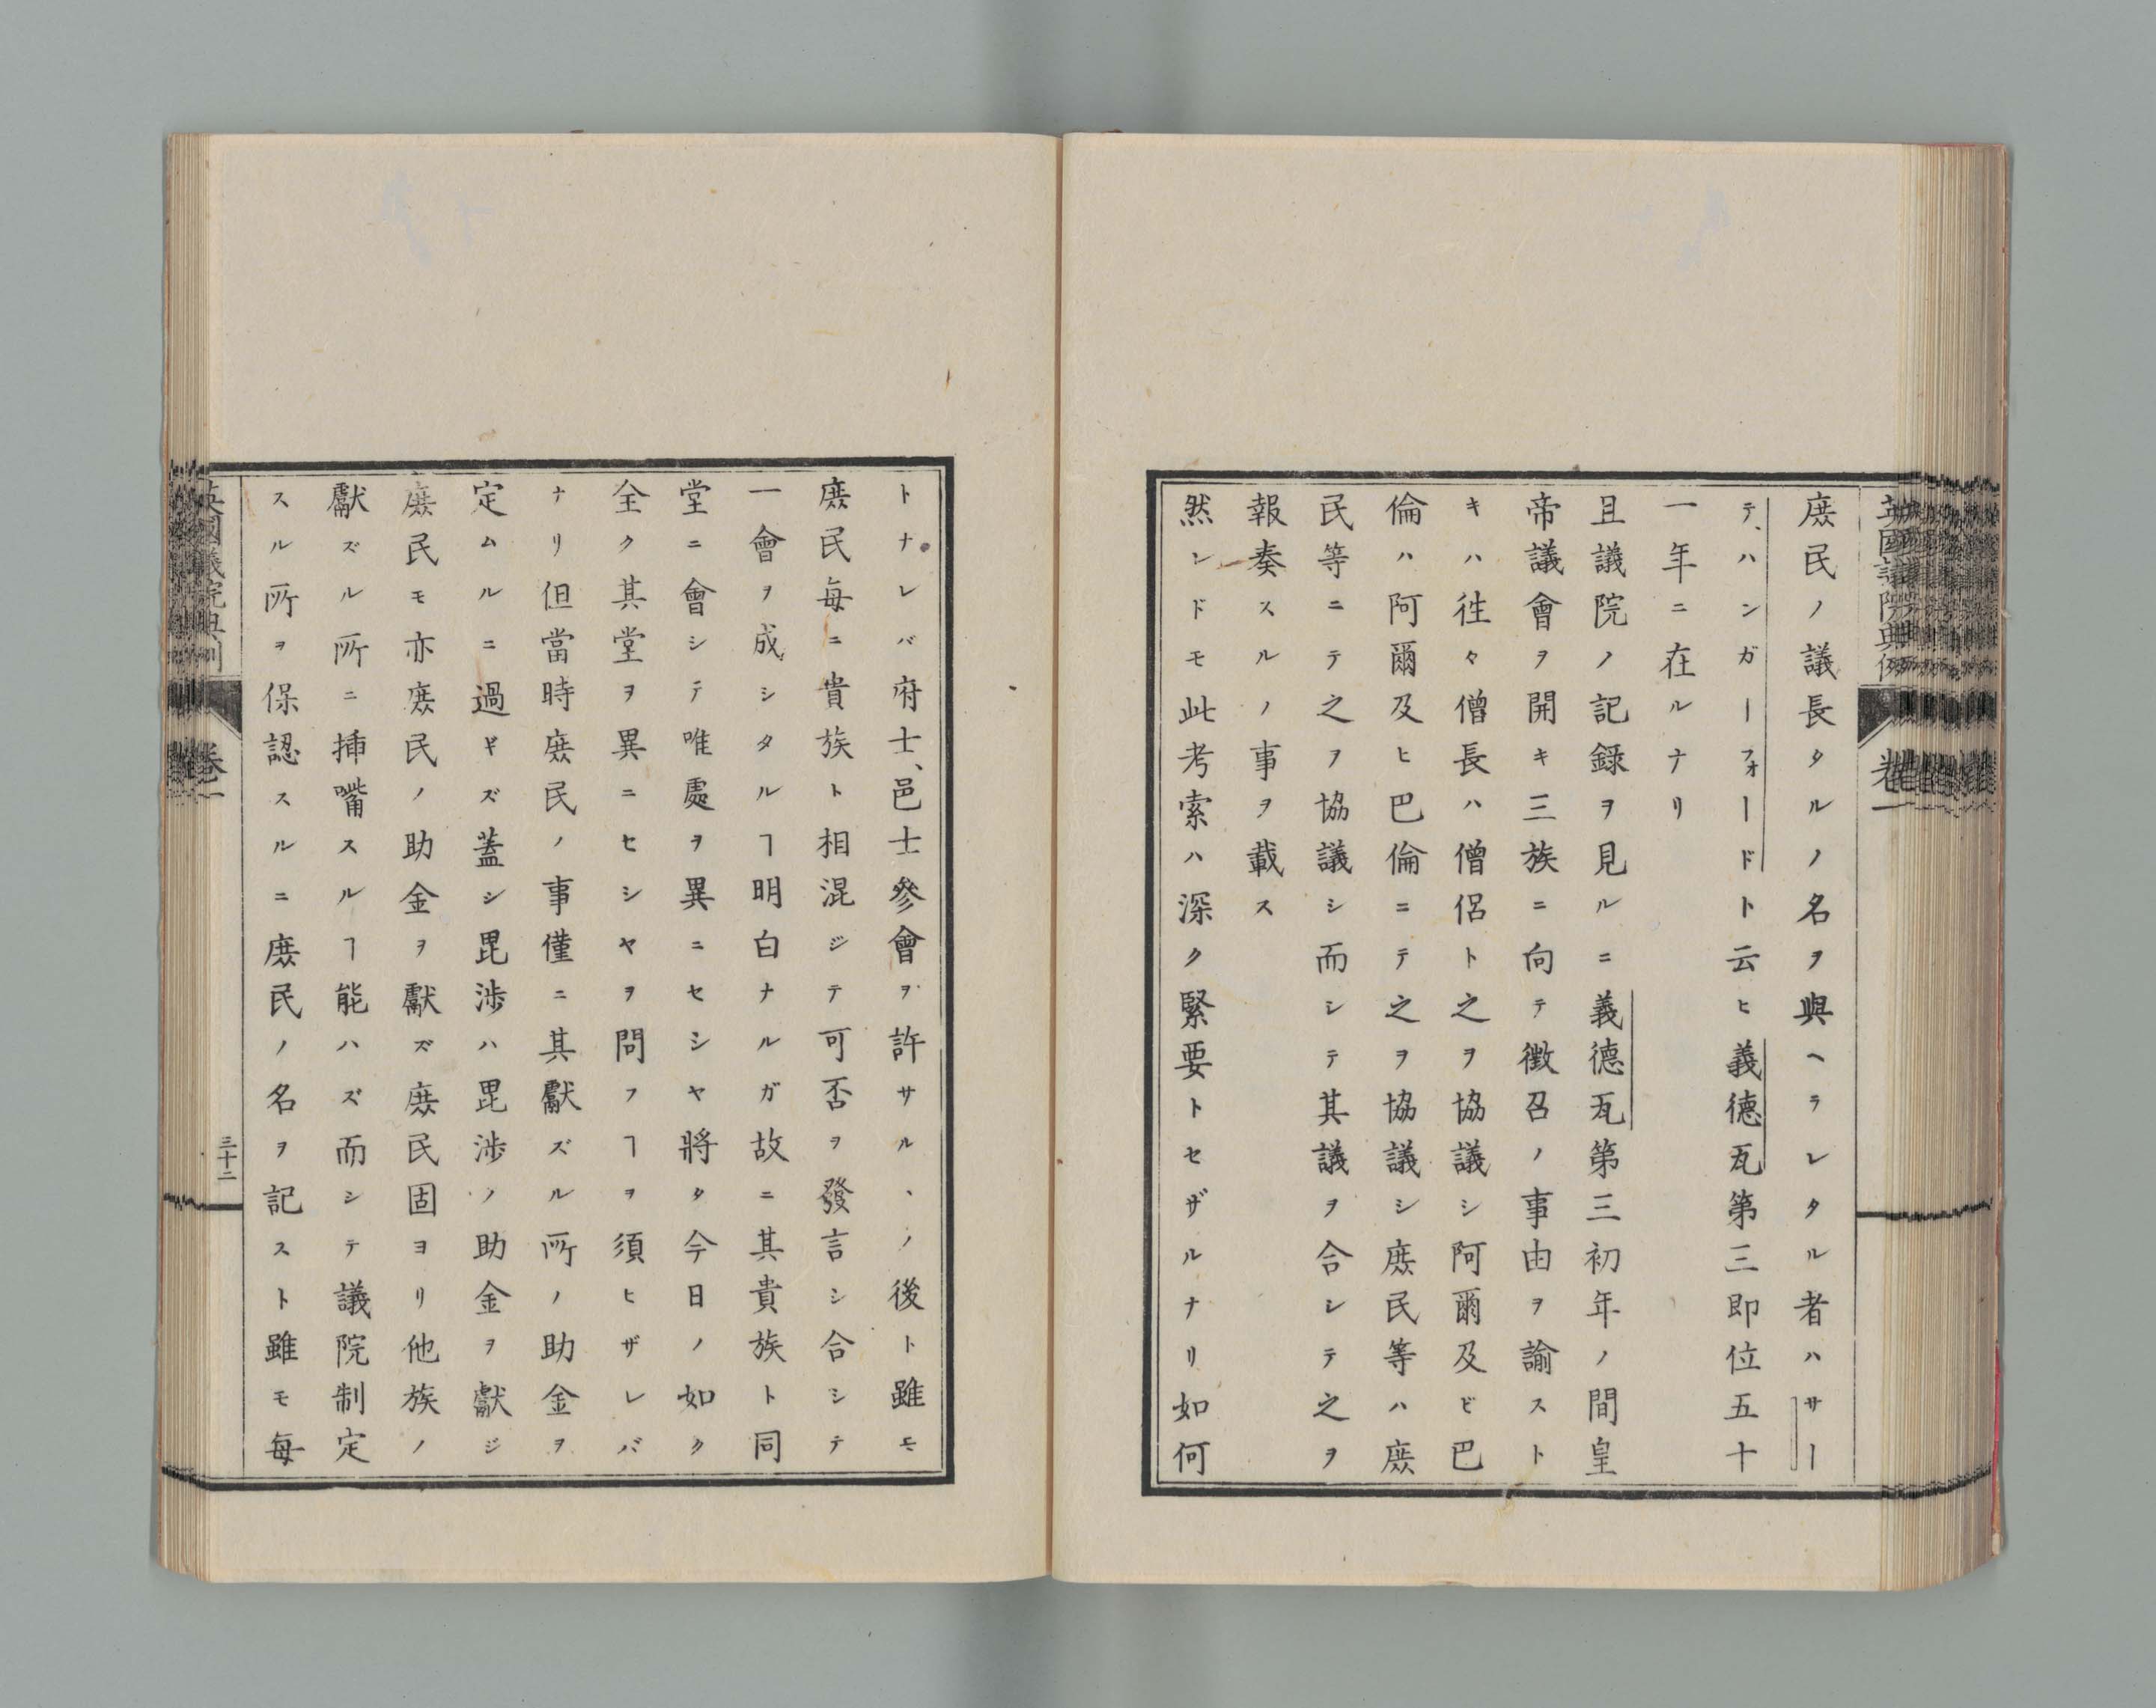 英國議院典例 卷一
庶民ノ議長タルノ名ヲ與ヘラレタル者ハサー
テ、ハンガーフォードト云ヒ義德瓦第三即位五十
一年ニ在ルナリ
且議院ノ記錄ヲ見ルニ義德瓦第三初年ノ間皇
帝議會ヲ開キ三族ニ向テ徴召ノ事由ヲ諭スト
キハ徃々僧長ハ僧侶ト之ヲ協議シ阿爾及ビ巴
倫ハ阿爾及ヒ巴倫ニテ之ヲ協議シ庶民等ハ庶
民等ニテ之ヲ協議シ而シテ其議ヲ合シテ之ヲ
報奏スルノ事ヲ載ス
然ンドモ此考索ハ深ク緊要トセザルナリ如何
トナレバ府士、邑士參會ヲ許サルヽノ後ト雖モ
庶民每ニ貴族ト相混ジテ可否ヲ發言シ合シテ
一會ヲ成シタルヿ明白ナルガ故ニ其貴族ト同
堂ニ會シテ唯處ヲ異ニセシヤ將タ今日ノ如ク
全ク其堂ヲ異ニヒシヤヲ問フヿヲ須ヒザレバ
ナリ但當時庶民ノ事僅ニ其獻ズル所ノ助金ヲ
定ムルニ過ギズ蓋シ毘渉ハ毘渉ノ助金ヲ獻ジ
庶民モ亦庶民ノ助金ヲ獻ズ庶民固ヨリ他族ノ
獻ズル所ニ挿嘴スルヿ能ハズ而シテ議院制定
スル所ヲ保認スルニ庶民ノ名ヲ記スト雖モ每
英國議院典例 卷一 三十二